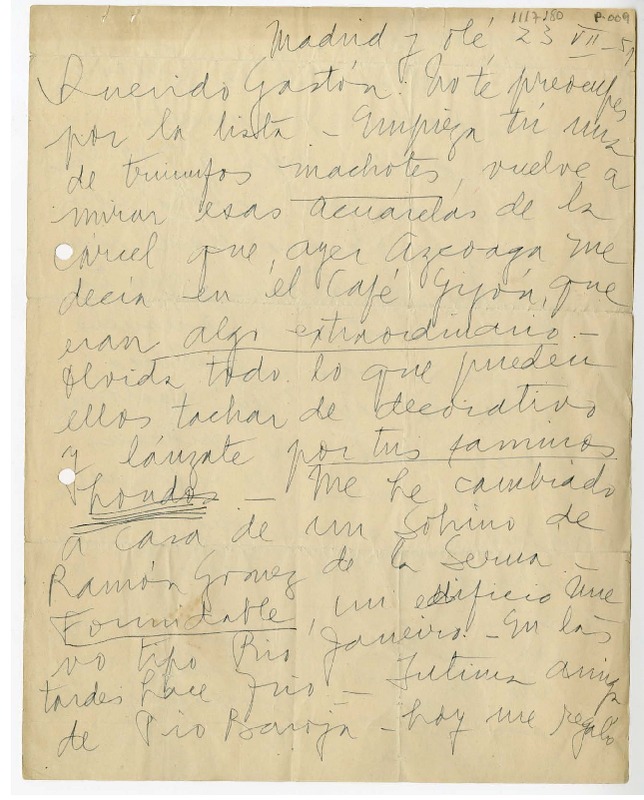 1117180 P-009
Madrid y olé 23 VII-51
Querido Gastón: No te preocupes
por la lista - Empieza tú una
de triunfos machotes, vuelve a
mirar esas acuarelas de la
cárcel que, ayer Azcoaga me
decía en el Café Gijón, que
eran algo extraordinario -
Olvida todo lo que pueden
ellos tachar de decorativo
y lánzate por tus caminos
hondos - Me he cambiado
a casa de un sobrino de
Ramón Gomez de la Serna -
Formidable, un edificio nue
vo tipo Rio Janeiro. - En las
tardes hace frio - Intima amiga
de Pio Baroja - hoy me regaló